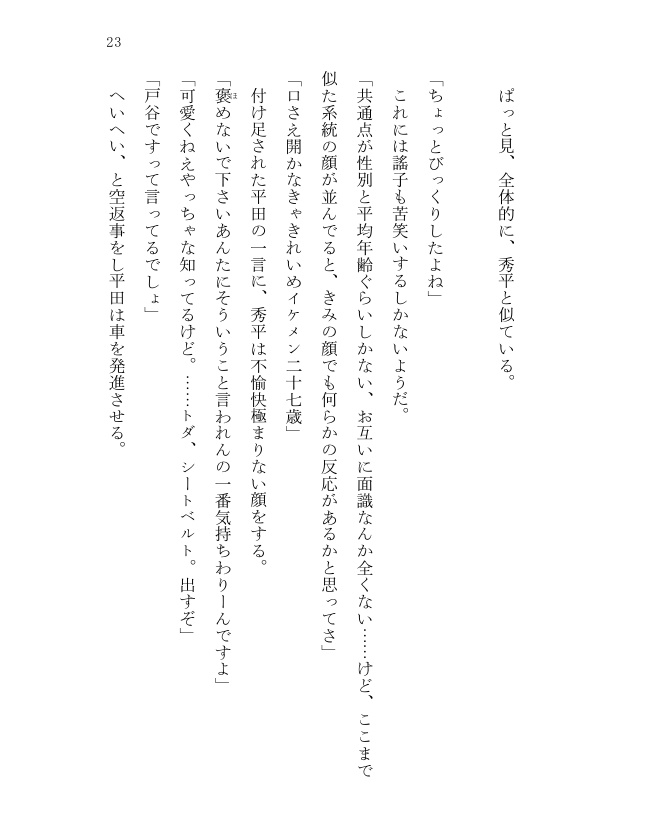 23
ぱっと見、全体的に、秀平と似ている。
「ちょっとびっくりしたよね」
これには謠子も苦笑いするしかないようだ。
「共通点が性別と平均年齢ぐらいしかない、お互いに面識なんか全くない……けど、ここまで
似た系統の顔が並んでると、きみの顔でも何らかの反応があるかと思ってさ」
「口さえ開かなきゃきれいめイケメン二十七歳」
付け足された平田の一言に、秀平は不愉快極まりない顔をする。
「褒ほめないで下さいあんたにそういうこと言われんの一番気持ちわりーんですよ」
「可愛くねえやっちゃな知ってるけど。……トダ、シートベルト。出すぞ」
「戸谷ですって言ってるでしょ」
へいへい、と空返事をし平田は車を発進させる。